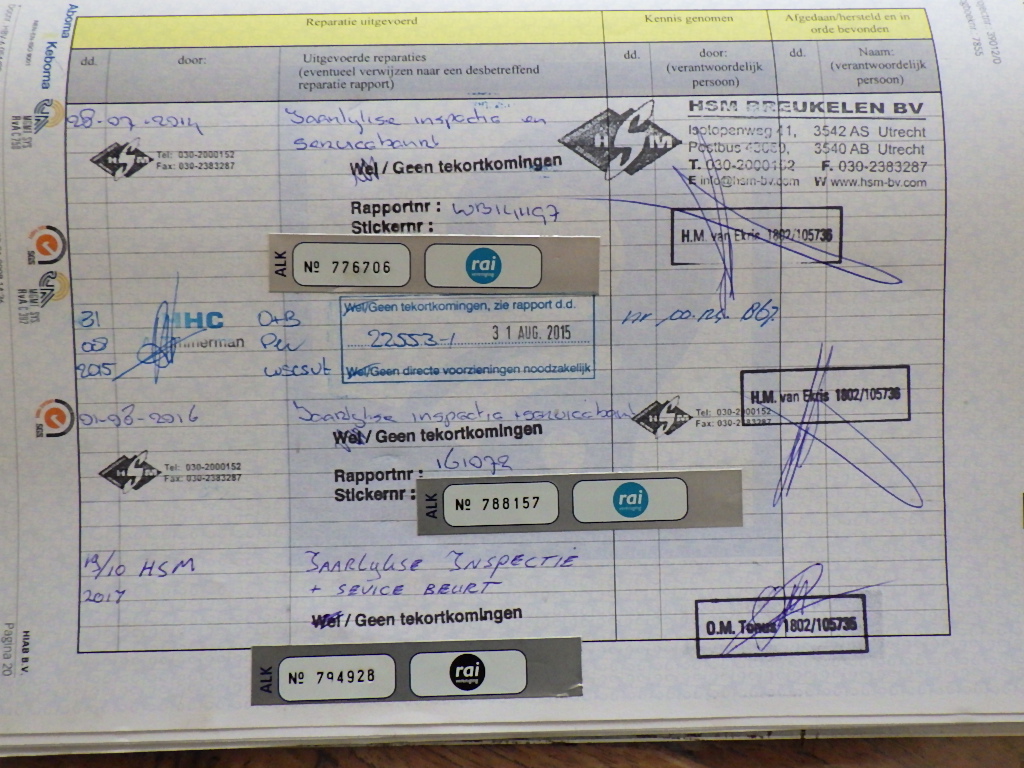 Reparatie uitgevoerd
Kennis genomen
Afgedaan/hersteld en in
orde bevonden
dd.
door:
Uitgevoerde reparaties
(eventueel verwijzen naar een desbetreffend
reparatie rapport)
dd.
door:
(verantwoordelijk
persoon)
dd.
Naam:
(verantwoordelijk
persoon)
28-07-2014
Jaarlijkse inspectie en
servicebeurt
HSM BREUKELEN BV
Isotopenweg 41, 3542 AS Utrecht
Postbus 43050, 3540 AB Utrecht
T. 030-2000152 F. 030-2383287
E info@hsm-bv.com W www.hsm-bv.com
HSM
Tel: 030-2000152
Fax: 030-2383287
Wel / Geen tekortkomingen
Rapportnr : WB141197
Stickernr :
H.M. van Ekris 1802/105736
ALK Nº 776706 rai vereniging
31
08
2015
MHC
O+B
Wel/Geen tekortkomingen, zie rapport d.d.
22553-1 31 AUG. 2015
Wel/Geen directe voorzieningen noodzakelijk
H.M. van Ekris 1802/105736
01-08-2016
Jaarlijkse inspectie + servicebeurt
HSM
Tel: 030-2000152
Fax: 030-2383287
Wel / Geen tekortkomingen
HSM
Tel: 030-2000152
Fax: 030-2383287
Rapportnr : 161072
Stickernr :
ALK Nº 788157 rai vereniging
19/10 HSM
2017
JAARLIJKSE INSPECTIE
+ SEVICE BEURT
Wel / Geen tekortkomingen
O.M. Tonus 1802/105736
ALK Nº 794928 rai vereniging
Aboma Keboma
SGS
SGS
HIAB B.V.
Pagina 20